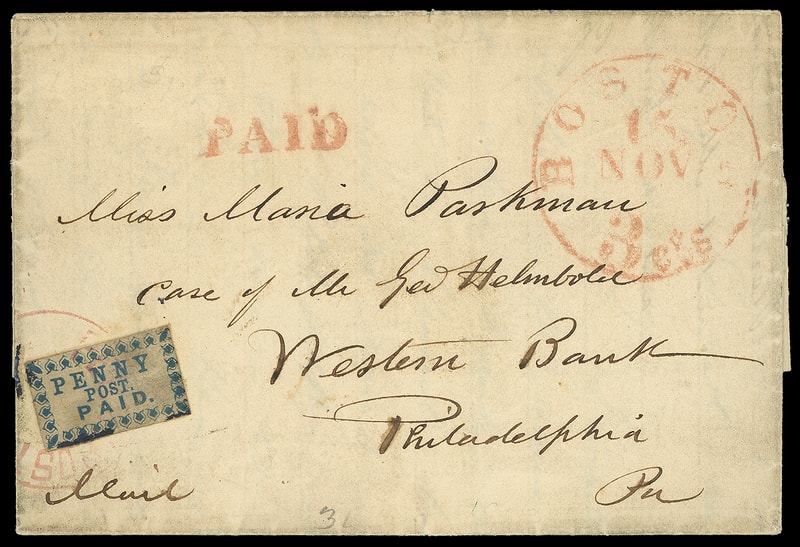 PAID
BOSTON
15
NOV
3 Cts
Miss Maria Parkman
Care of Mr Geo Helmbold
Western Bank
Philadelphia
Pa
PENNY
POST.
PAID.
Mail
3